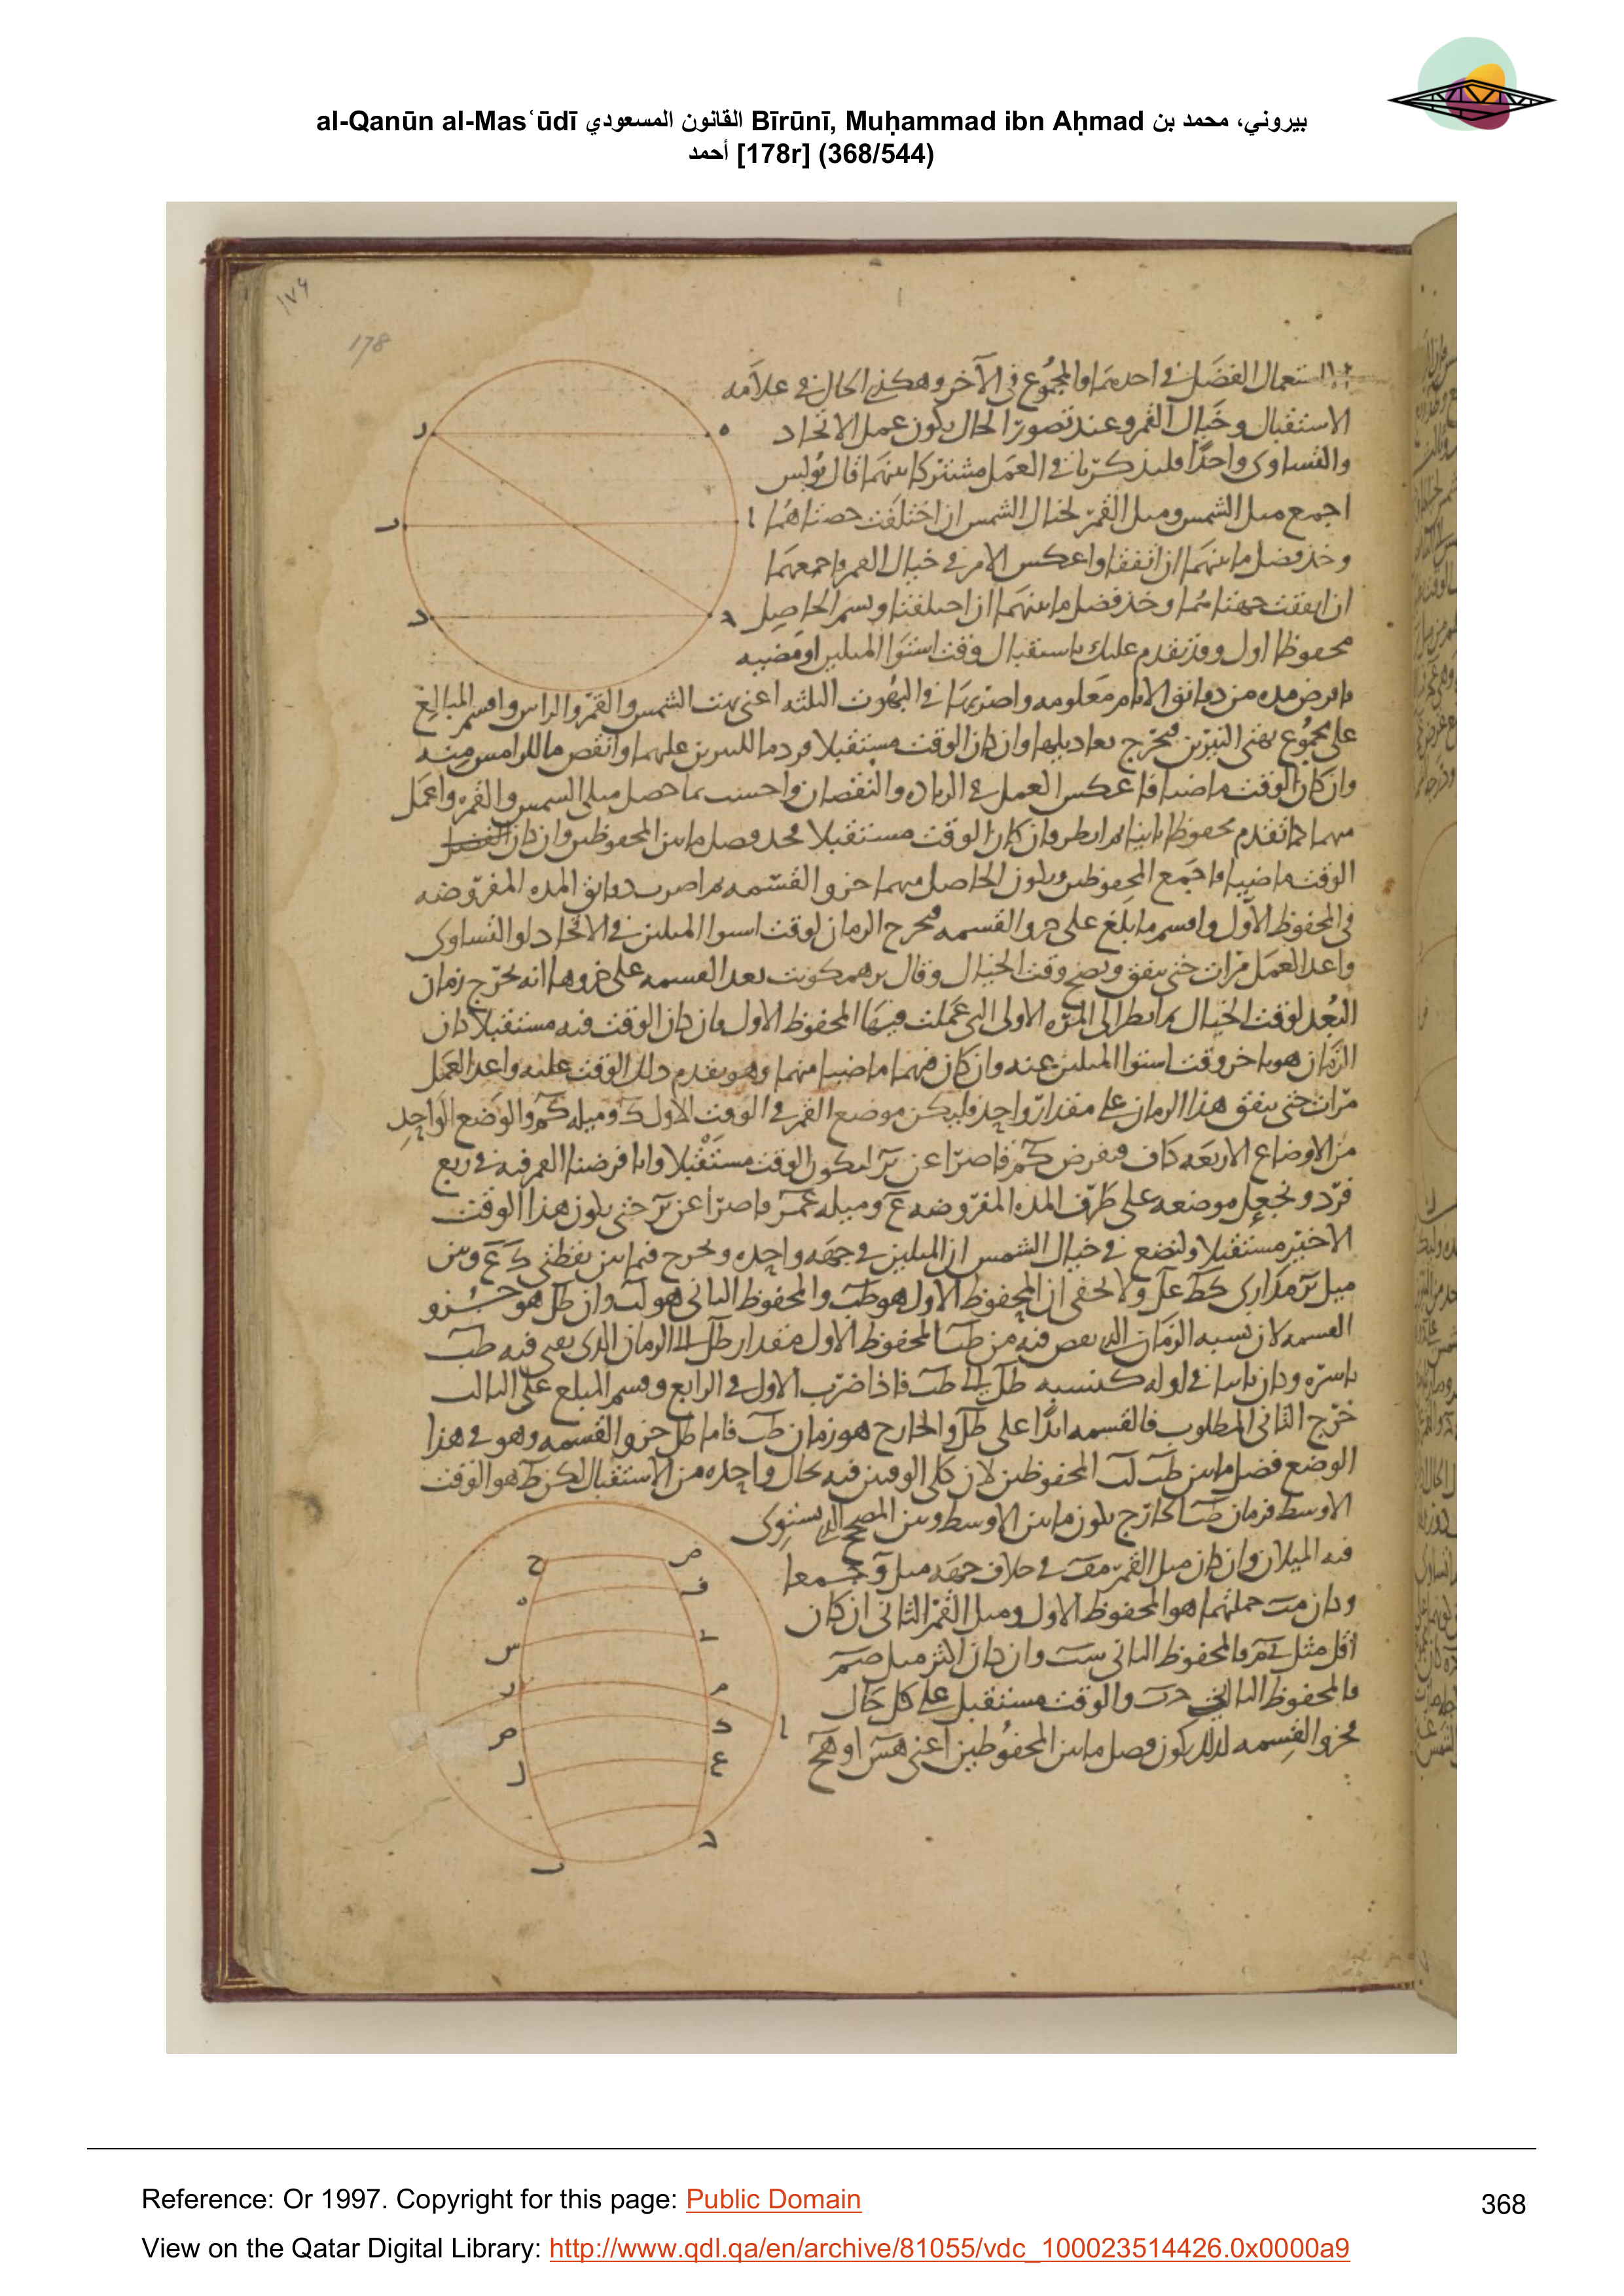 al-Qanūn al-Masʿūdī القانون المسعودي Bīrūnī, Muḥammad ibn Aḥmad بيروني، محمد بن
أحمد [178r] (368/544)
١٧۶
178
استعمال الفضل في احدهما والمجموع في الآخر وهكذى الحال في علامه
الاستقبال وخيال القمر وعند تصور الحال يكون عمل الاتحاد
والتساوى واحدا فليذكر ثانى العمل مشتركا بينهما قال بولس
اجمع ميل الشمس وميل القمر لخيال الشمس ان اختلفت حصتاهما
وخذ فضل ما بينهما ان اتفقتا واعكس الامر في خيال القمر واجمعهما
ان اتفقت جهتاهما وخذ فضل ما بينهما ان اختلفتا وسم الحاصل
محفوظا اول وقد تقدم علمك باستقبال وقت استوا الميلين او مضيه
فافرض مده من دقائق الايام معلومه واضربها في البهوت الثلثه اعنى بهت الشمس والقمر والراس واقسم المبالغ
على مجموع بهتى النيرين فيخرج تعاديلها وان كان الوقت مستقبلا فزد ما للنيرين عليهما وانقص ما للراس منه
وان كان الوقت ماضيا فاعكس العمل في الزياده والنقصان واحسب بما حصل ميلى الشمس والقمر واعمل
منهما كما تقدم محفوظا ثانيا ثم انظر فان كان الوقت مستقبلا فخذ فضل ما بين المحفوظين وان كان
الوقت ماضيا فاجمع المحفوظين ويكون الحاصل منهما جزو القسمه ثم اضرب دقائق المده المفروضه
في المحفوظ الاول واقسم ما بلغ على جزو القسمه فيخرج الزمان لوقت استوا الميلين في الاتحاد او التساوى
واعد العمل مرات حتى يتفق ويصح وقت الخيال وقال برهمكوبت بعد القسمه على جزوها انه يخرج زمان
البعد لوقت الخيال ثم انظر الى المره الاولى التى عملت فيها المحفوظ الاول فان كان الوقت فيه مستقبلا كان
الزمان هو تاخر وقت استوا الميلين عنه وان كان فيهما ماضيا منهما وهو تقدم ذلك الوقت عليه واعد العمل
مرات حتى يتفق هذا الزمان على مقدار واحد فليكن موضع القمر في الوقت الاول ك وميله كم والوضع الواحد
من الاوضاع الاربعه كاف فنفرض كم قاصرا عن ليكون الوقت مستقبلا وانا فرضنا القمر فيه في ربع
فرد ونجعل موضعه على طرف المده المفروضه ع وميله قاصرا عن حتى يكون هذا الوقت
الاخير مستقبلا ولنضع في خيال الشمس ان الميلين في جهه واحده ونخرج فيما بين نقطتى ك ع وبين
ميل مدارى كط عل ولا يخفى ان المحفوظ الاول هو طب والمحفوظ الثانى هو لب وان طل هو جزو
القسمه لان نسبه الزمان الذى نقص فيه من طب المحفوظ الاول مقدار طل الى الزمان الذى يفنى فيه طب
باسره وكان ثانيا في اوله كنسبه طل الى طب فاذا ضرب الاول في الرابع وقسم المبلغ على الثالث
خرج الثانى المطلوب فالقسمه ابدا على طل والخارج هو زمان طب فاما طل جزو القسمه وهو في هذا
الوضع فضل ما بين طب لب المحفوظين لان كلى الوقتين فيه بحال واحده من الاستقبال لكن ط هو الوقت
الاوسط فزمان طب الخارج يكون ما بين الاوسط وبين المصحح الذى يستوى
فيه الميلان وان كان ميل القمر في خلاف جهه ميل جمعا
وكان جملتهما هو المحفوظ الاول وميل القمر الثانى ان كان
اقل مثل فالمحفوظ الثانى وان كان اكثر مثل
فالمحفوظ الثانى والوقت مستقبل على كل حال
فجزو القسمه لذلك يكون فضل ما بين المحفوظين اعنى هس او هح
Reference: Or 1997. Copyright for this page: Public Domain
368
View on the Qatar Digital Library: http://www.qdl.qa/en/archive/81055/vdc_100023514426.0x0000a9